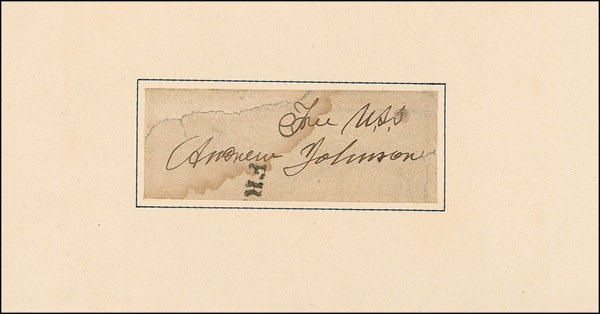 Free U.S.S
Andrew Johnson
FR